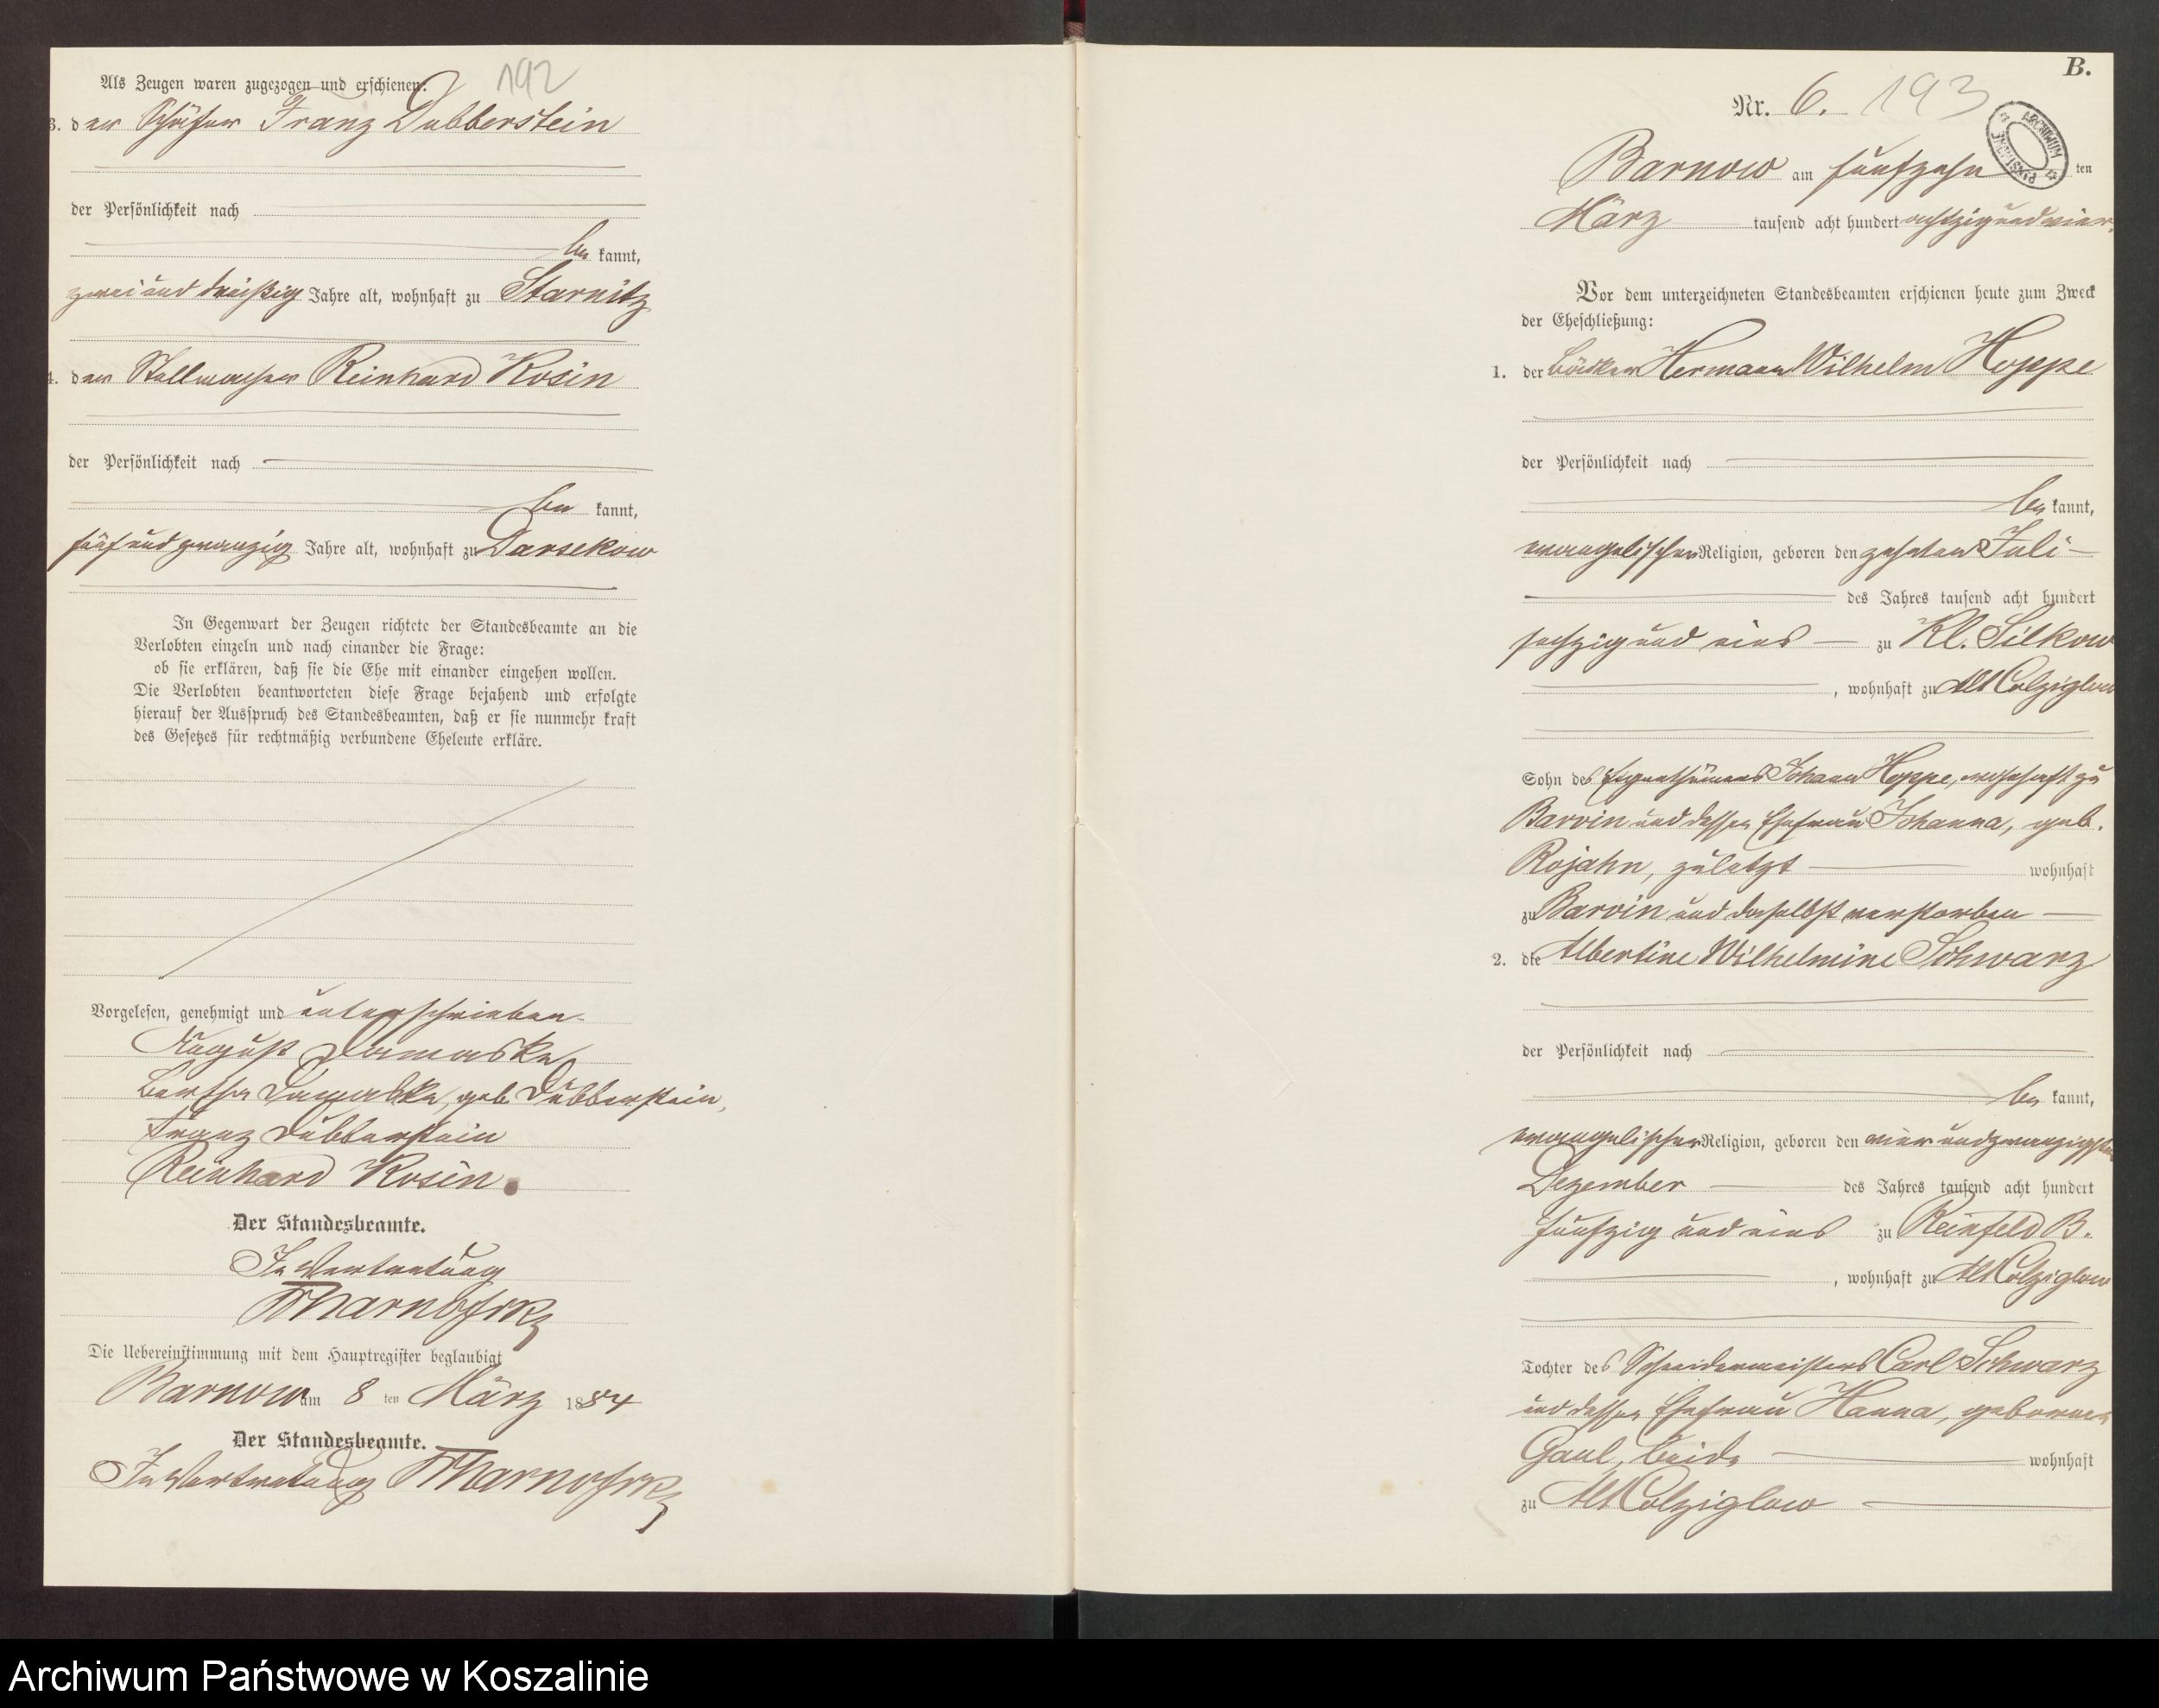 192
Als Zeugen waren zugezogen und erschienen:
3. der Schäfer Franz Dubberstein
der Persönlichkeit nach
be kannt,
zwei und dreißig Jahre alt, wohnhaft zu Starnitz
4. der Stellmacher Reinhard Kosin
der Persönlichkeit nach
be kannt,
fünf und zwanzig Jahre alt, wohnhaft zu Darsekow
In Gegenwart der Zeugen richtete der Standesbeamte an die
Verlobten einzeln und nach einander die Frage:
ob sie erklären, daß sie die Ehe mit einander eingehen wollen.
Die Verlobten beantworteten diese Frage bejahend und erfolgte
hierauf der Ausspruch des Standesbeamten, daß er sie nunmehr kraft
des Gesetzes für rechtmäßig verbundene Eheleute erkläre.
Vorgelesen, genehmigt und unterschrieben
August Damaske
Bertha Damaske, geb. Dubberstein,
Franz Dubberstein
Reinhard Kosin.
Der Standesbeamte.
In Vertretung
Die Uebereinstimmung mit dem Hauptregister beglaubigt
Barnow am 8 ten März 1884
Der Standesbeamte.
In Vertretung
B.
Nr. 6. 193
ARCHIWUM PAŃSTWOWE
Barnow am fünfzehn ten
März tausend acht hundert achtzig und vier.
Vor dem unterzeichneten Standesbeamten erschienen heute zum Zweck
der Eheschließung:
1. der Bäcker Hermann Wilhelm Hoppe
der Persönlichkeit nach
be kannt,
evangelischer Religion, geboren den zehnten Juli
des Jahres tausend acht hundert
sechzig und eins zu Kl. Silkow
, wohnhaft zu Alt Colziglow
Sohn des Eigenthümers Johann Hoppe, wohnhaft zu
Barvin und dessen Ehefrau Johanna, geb.
Rojahn, zuletzt wohnhaft
zu Barvin und daselbst verstorben
2. die Albertine Wilhelmine Schwarz
der Persönlichkeit nach
be kannt,
evangelischer Religion, geboren den vier und zwanzigsten
Dezember des Jahres tausend acht hundert
fünfzig und eins zu Reinfeld B.
, wohnhaft zu Alt Colziglow
Tochter des Schneidermeisters Carl Schwarz
und dessen Ehefrau Hanna, geborenen
Gaul, beide wohnhaft
zu Alt Colziglow
Archiwum Państwowe w Koszalinie